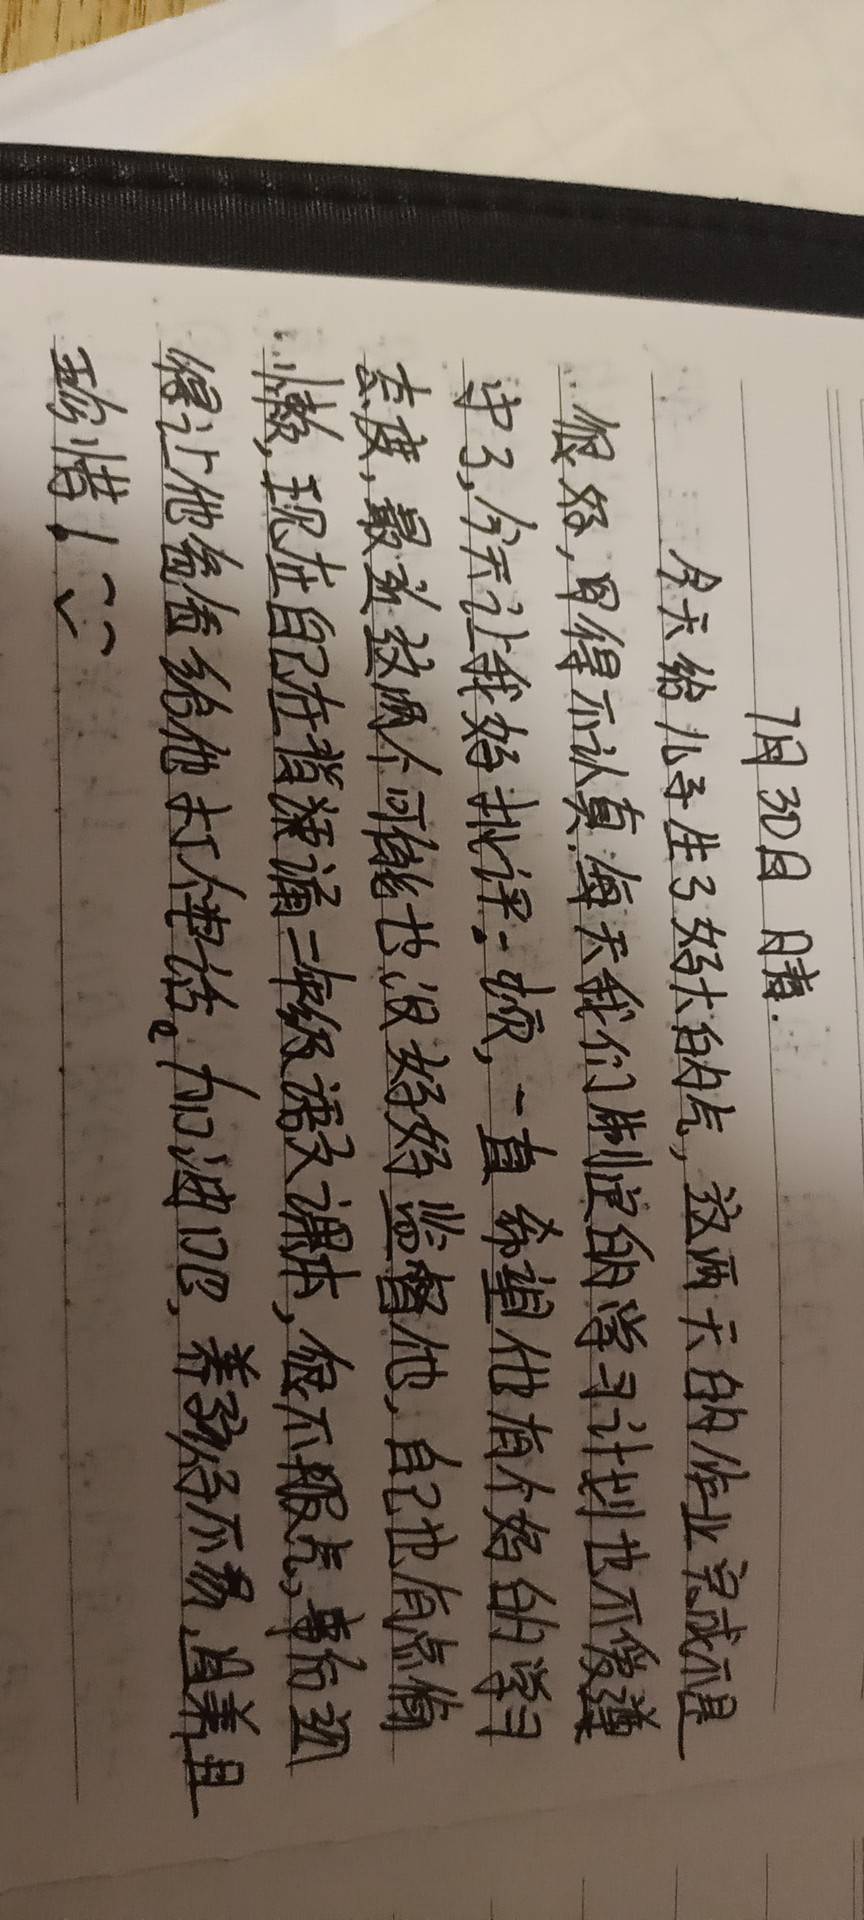 7月30日 晴.
今天给儿子生了好大的气,这两天的作业完成不是
很好,写得不认真.每天我们制定的学习计划也不遵
守了,今天让我好批评一顿,一直希望他有个好的学习
态度,最近这两个可能也没好好监督他,自己也有点偷
懒,现在自己在背诵二年级语文课本,很不服气,事后
得让他爸爸给他打个电话。加油吧,养孩子不易,且养且
珍惜!